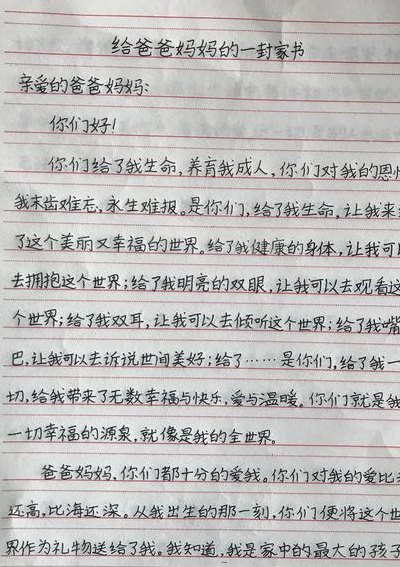 给爸爸妈妈的一封家书
亲爱的爸爸妈妈:
你们好!
你们给了我生命,养育我成人,你们对我的恩
我末齿难忘,永生难报。是你们,给了我生命,让我来
了这个美丽又幸福的世界。给了我健康的身体,让我可
去拥抱这个世界;给了我明亮的双眼,让我可以去观看这
个世界;给了我双耳,让我可以去倾听这个世界;给了我嘴
巴,让我可以去诉说世间美好;给了……是你们,给了我一
切,给我带来了无数幸福与快乐,爱与温暖。你们就是我
一切幸福的源泉,就像是我的全世界。
爸爸妈妈,你们都十分的爱我。你们对我的爱比
还高,比海还深。从我出生的那一刻,你们便将这个世
界作为礼物送给了我。我知道,我是家中的最大的孩子